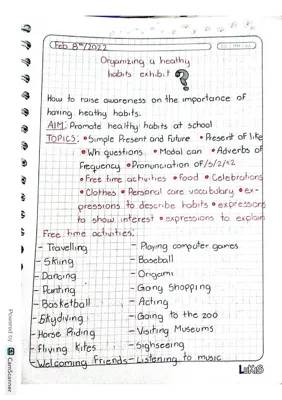 Feb 8th/2022
Organizing a heathy
habits exhibit ?
How to raise awareness on the importance of
having heathy habits.
AIM: Promote healthy habits at school
TOPICS: • Simple Present and Future • Present of like
• Wh questions • Modal can • Adverbs of
Frequency • Pronunciation of /s/z/
• Free time activities • Food • Celebrations
• Clothes • Personal care vocabulary • ex-
pressions to describe habits • expressions
to show interest • expressions to explain
Free time activities:
- Travelling - Playing computer games
- Skiing - Baseball
- Dancing - Origami
- Painting - Going Shopping
- Basketball - Acting
- Skydiving - Going to the zoo
- Horse Riding - Visiting Museums
- Fliying Kites - Sighseeing
- Welcoming Friends - Listening to music
Powered by CamScanner